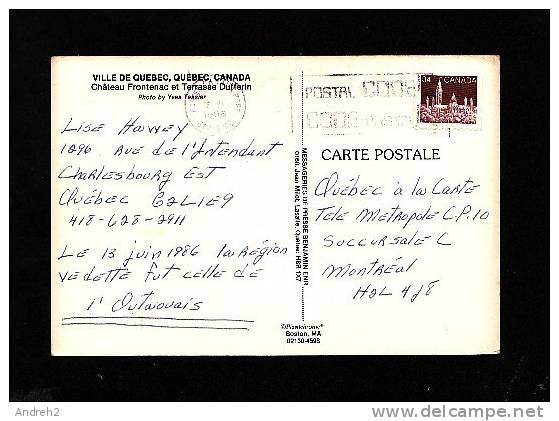 VILLE DE QUEBEC, QUÉBEC, CANADA
Château Frontenac et Terrasse Dufferin
Photo by Yves Tessier
Lise Harvey
1296, rue de l'Intendant
Charlesbourg Est
Québec G2L1E9
418-628-2911
Le 13 juin 1986 la Région
vedette fut celle de
l'Outaouais
MESSAGERIES DE PRESSE BENJAMIN ENR.
POSTAL CODE
CODE
34 CANADA
CARTE POSTALE
Québec à la Carte
Télé Metropole C.P. 10
Succursale C
Montréal
H2L 4J8
©Plastichrome®
Boston, MA
02130-4598
Andreh2
delcampe.net